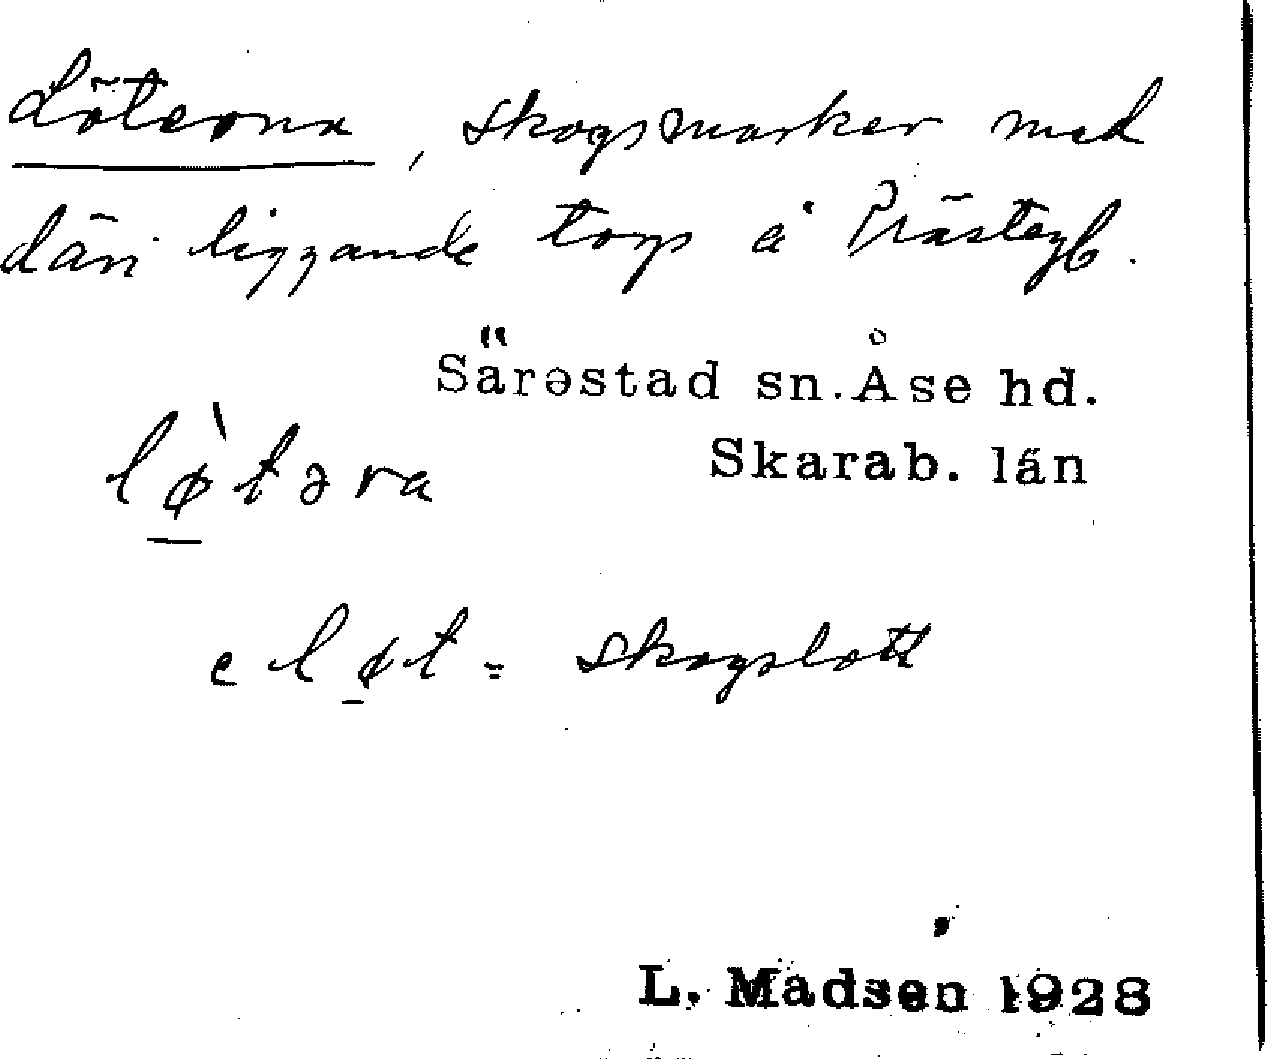 Löterna, skogsmarker med
däri liggande torp å Prästegb.
Särəstad sn. Åse hd.
lø̀təra
Skarab. län
e løt = skogslott
L. Madsen 1928